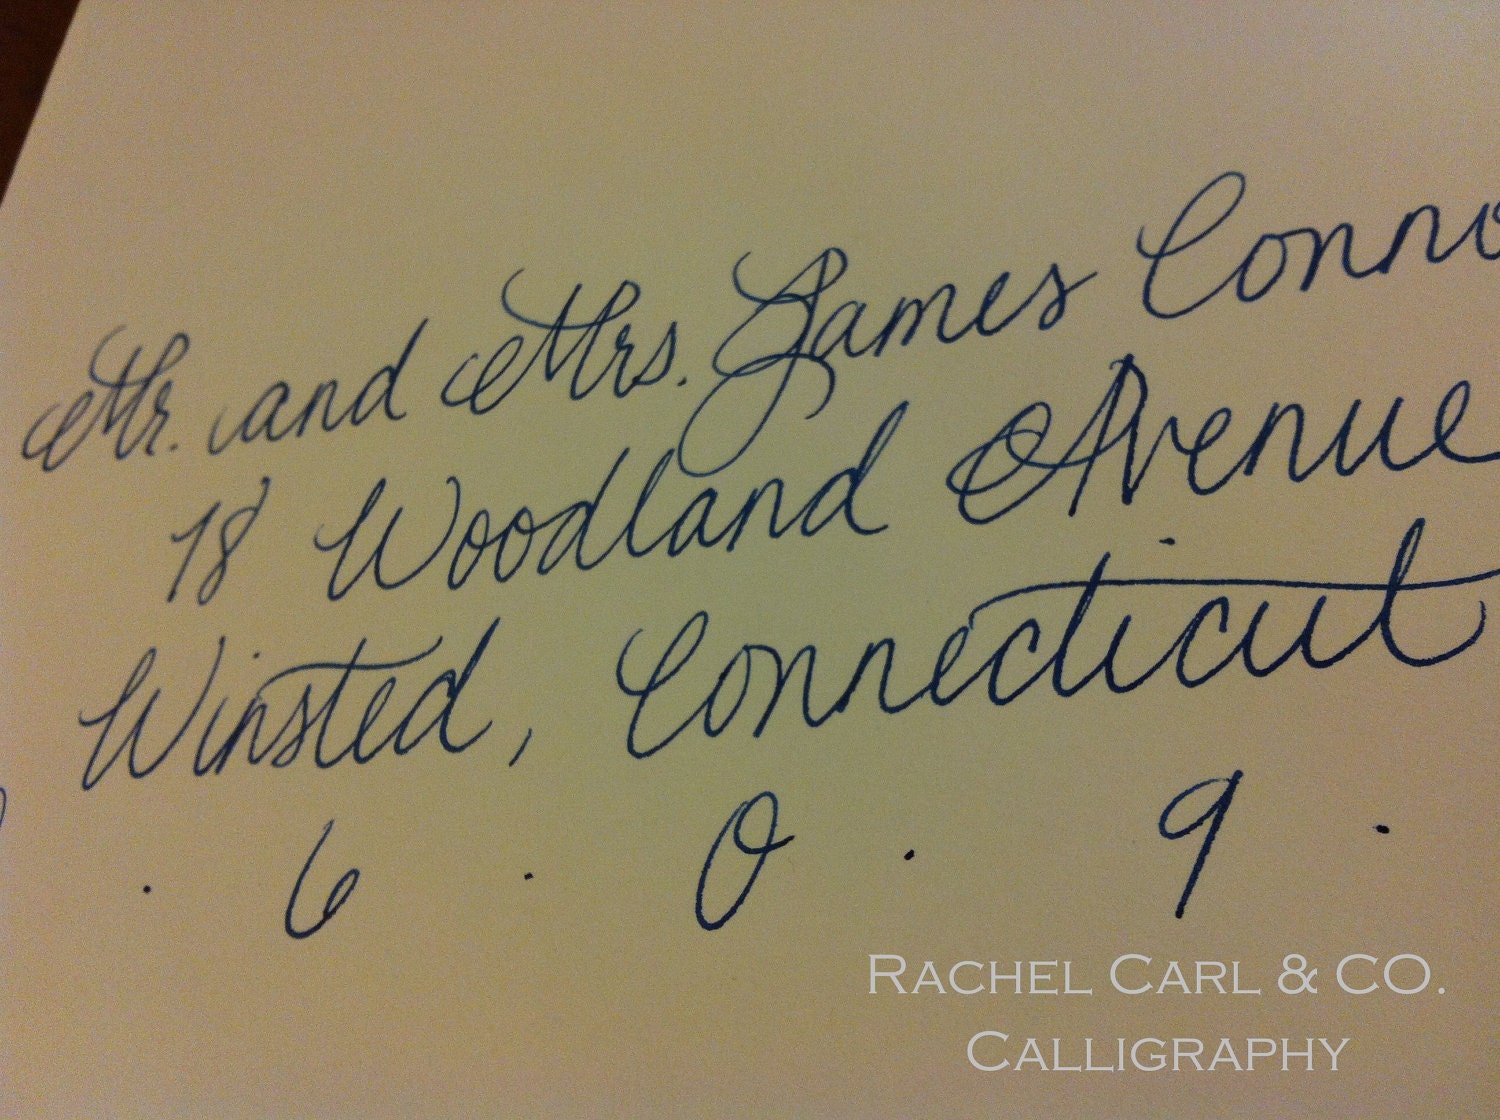 Mr. and Mrs. James Conno
18 Woodland Avenue
Winsted, Connecticut
. 6 . 0 . 9 .
RACHEL CARL & CO.
CALLIGRAPHY